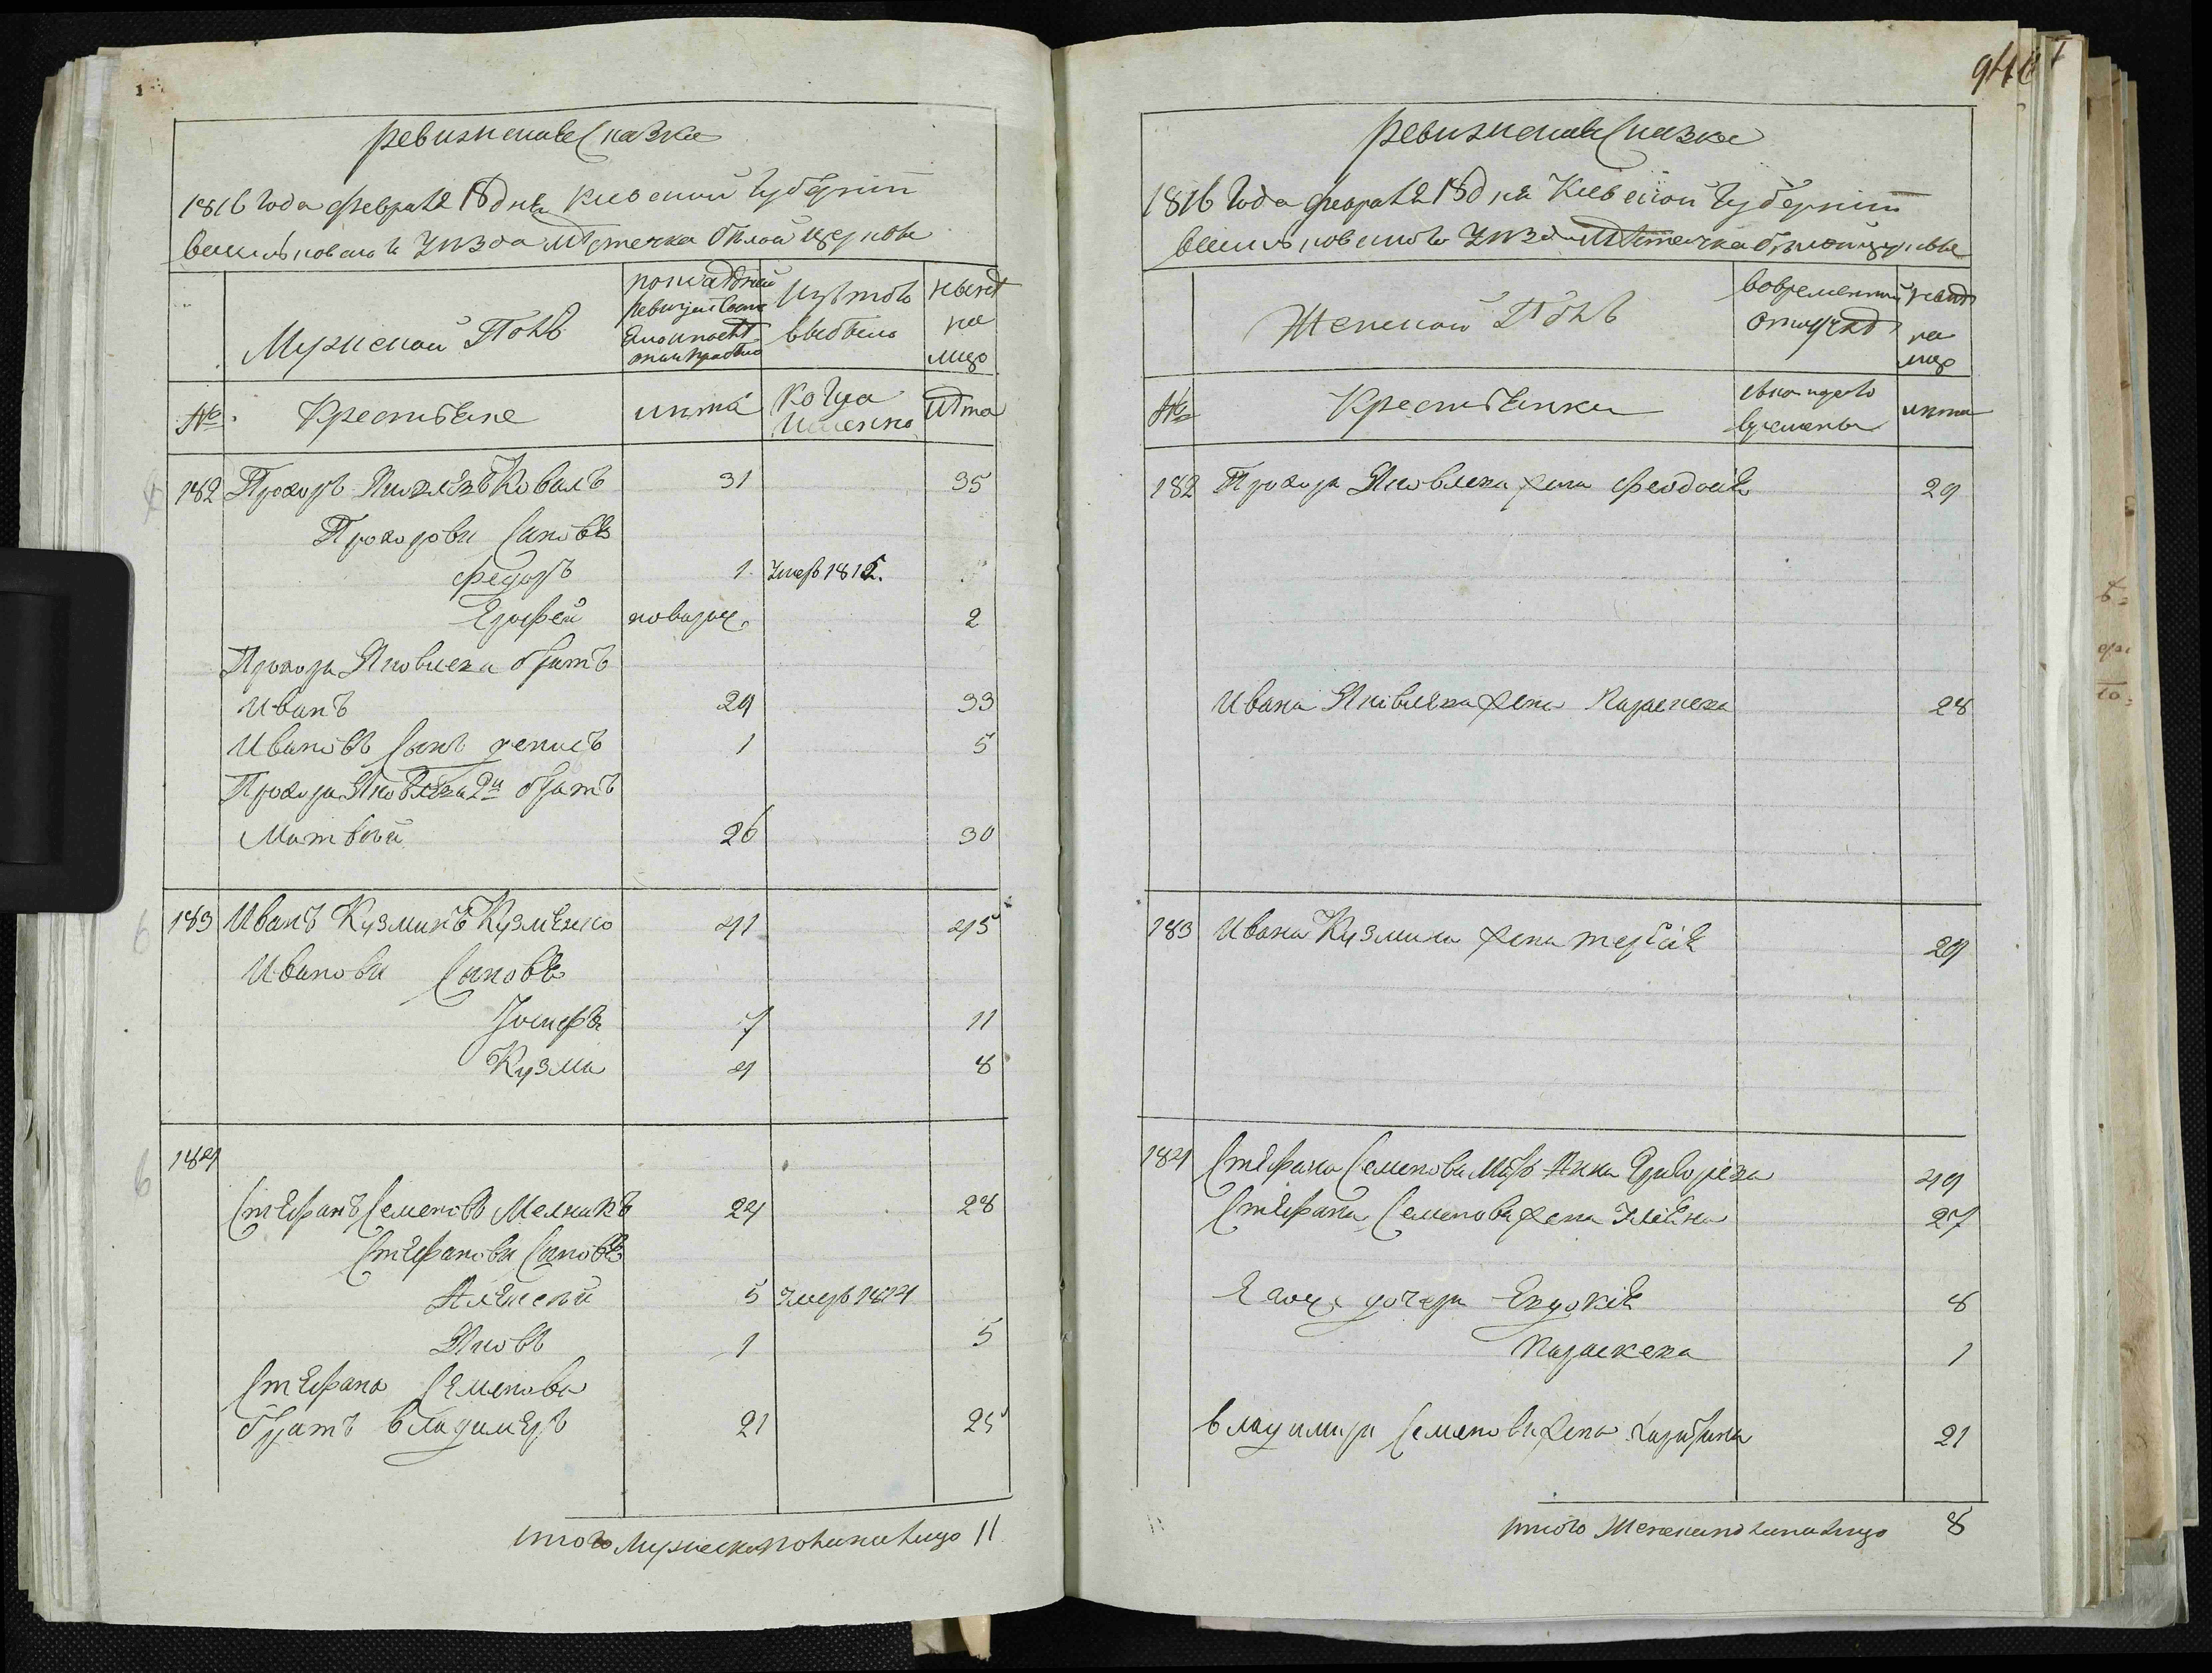 Ревизская Сказка
1816 Года февраля 18 дня Киевской Губернии
васильковского уезда местечка белой церкви
Мужеской Полъ
по последней ревизии состояло
Изъ того выбыло
ныне на лицо
№
Крестьяне
лета
Когда Именно
лета
182 Прохоръ Яковлевъ Коваль 31 35
Прохоровы Сыновья
федоръ 1 умеръ 1812.
Ерофей новорож. 2
Прохора Яковлева братъ
Иванъ 29 33
Ивановъ Сынъ денисъ 1 5
Прохора Яковлева 2й братъ
Матвей 26 30
183 Иванъ Кузминъ Кузменко 41 45
Ивановы Сыновья
Iосифъ 7 11
Кузма 4 8
184
Стефанъ Семеновъ Мелникъ 24 28
Стефановы Сыновья
Алексей 5 умеръ 1814
Яковъ 1 5
Стефана Семенова
братъ владимеръ 21 25
итого Мужеска пола на лицо 11
941
Ревизская Сказка
1816 Года февраля 18 дня Киевской Губернии
васильковского уезда местечка белой церкви
Женской Полъ
во временной отлучке
ныне на лицо
№
Крестьянки
времени
лета
182 Прохора Яковлева жена феодосия 29
Ивана Яковлева жена Параскева 28
183 Ивана Кузмина жена 29
184 Стефана Семенова Мать Анна Григорева 49
Стефана Семенова жена 27
Его дочери Евдокия 8
Параскева 1
владимира Семенова жена 21
итого Женска пола на лицо 8